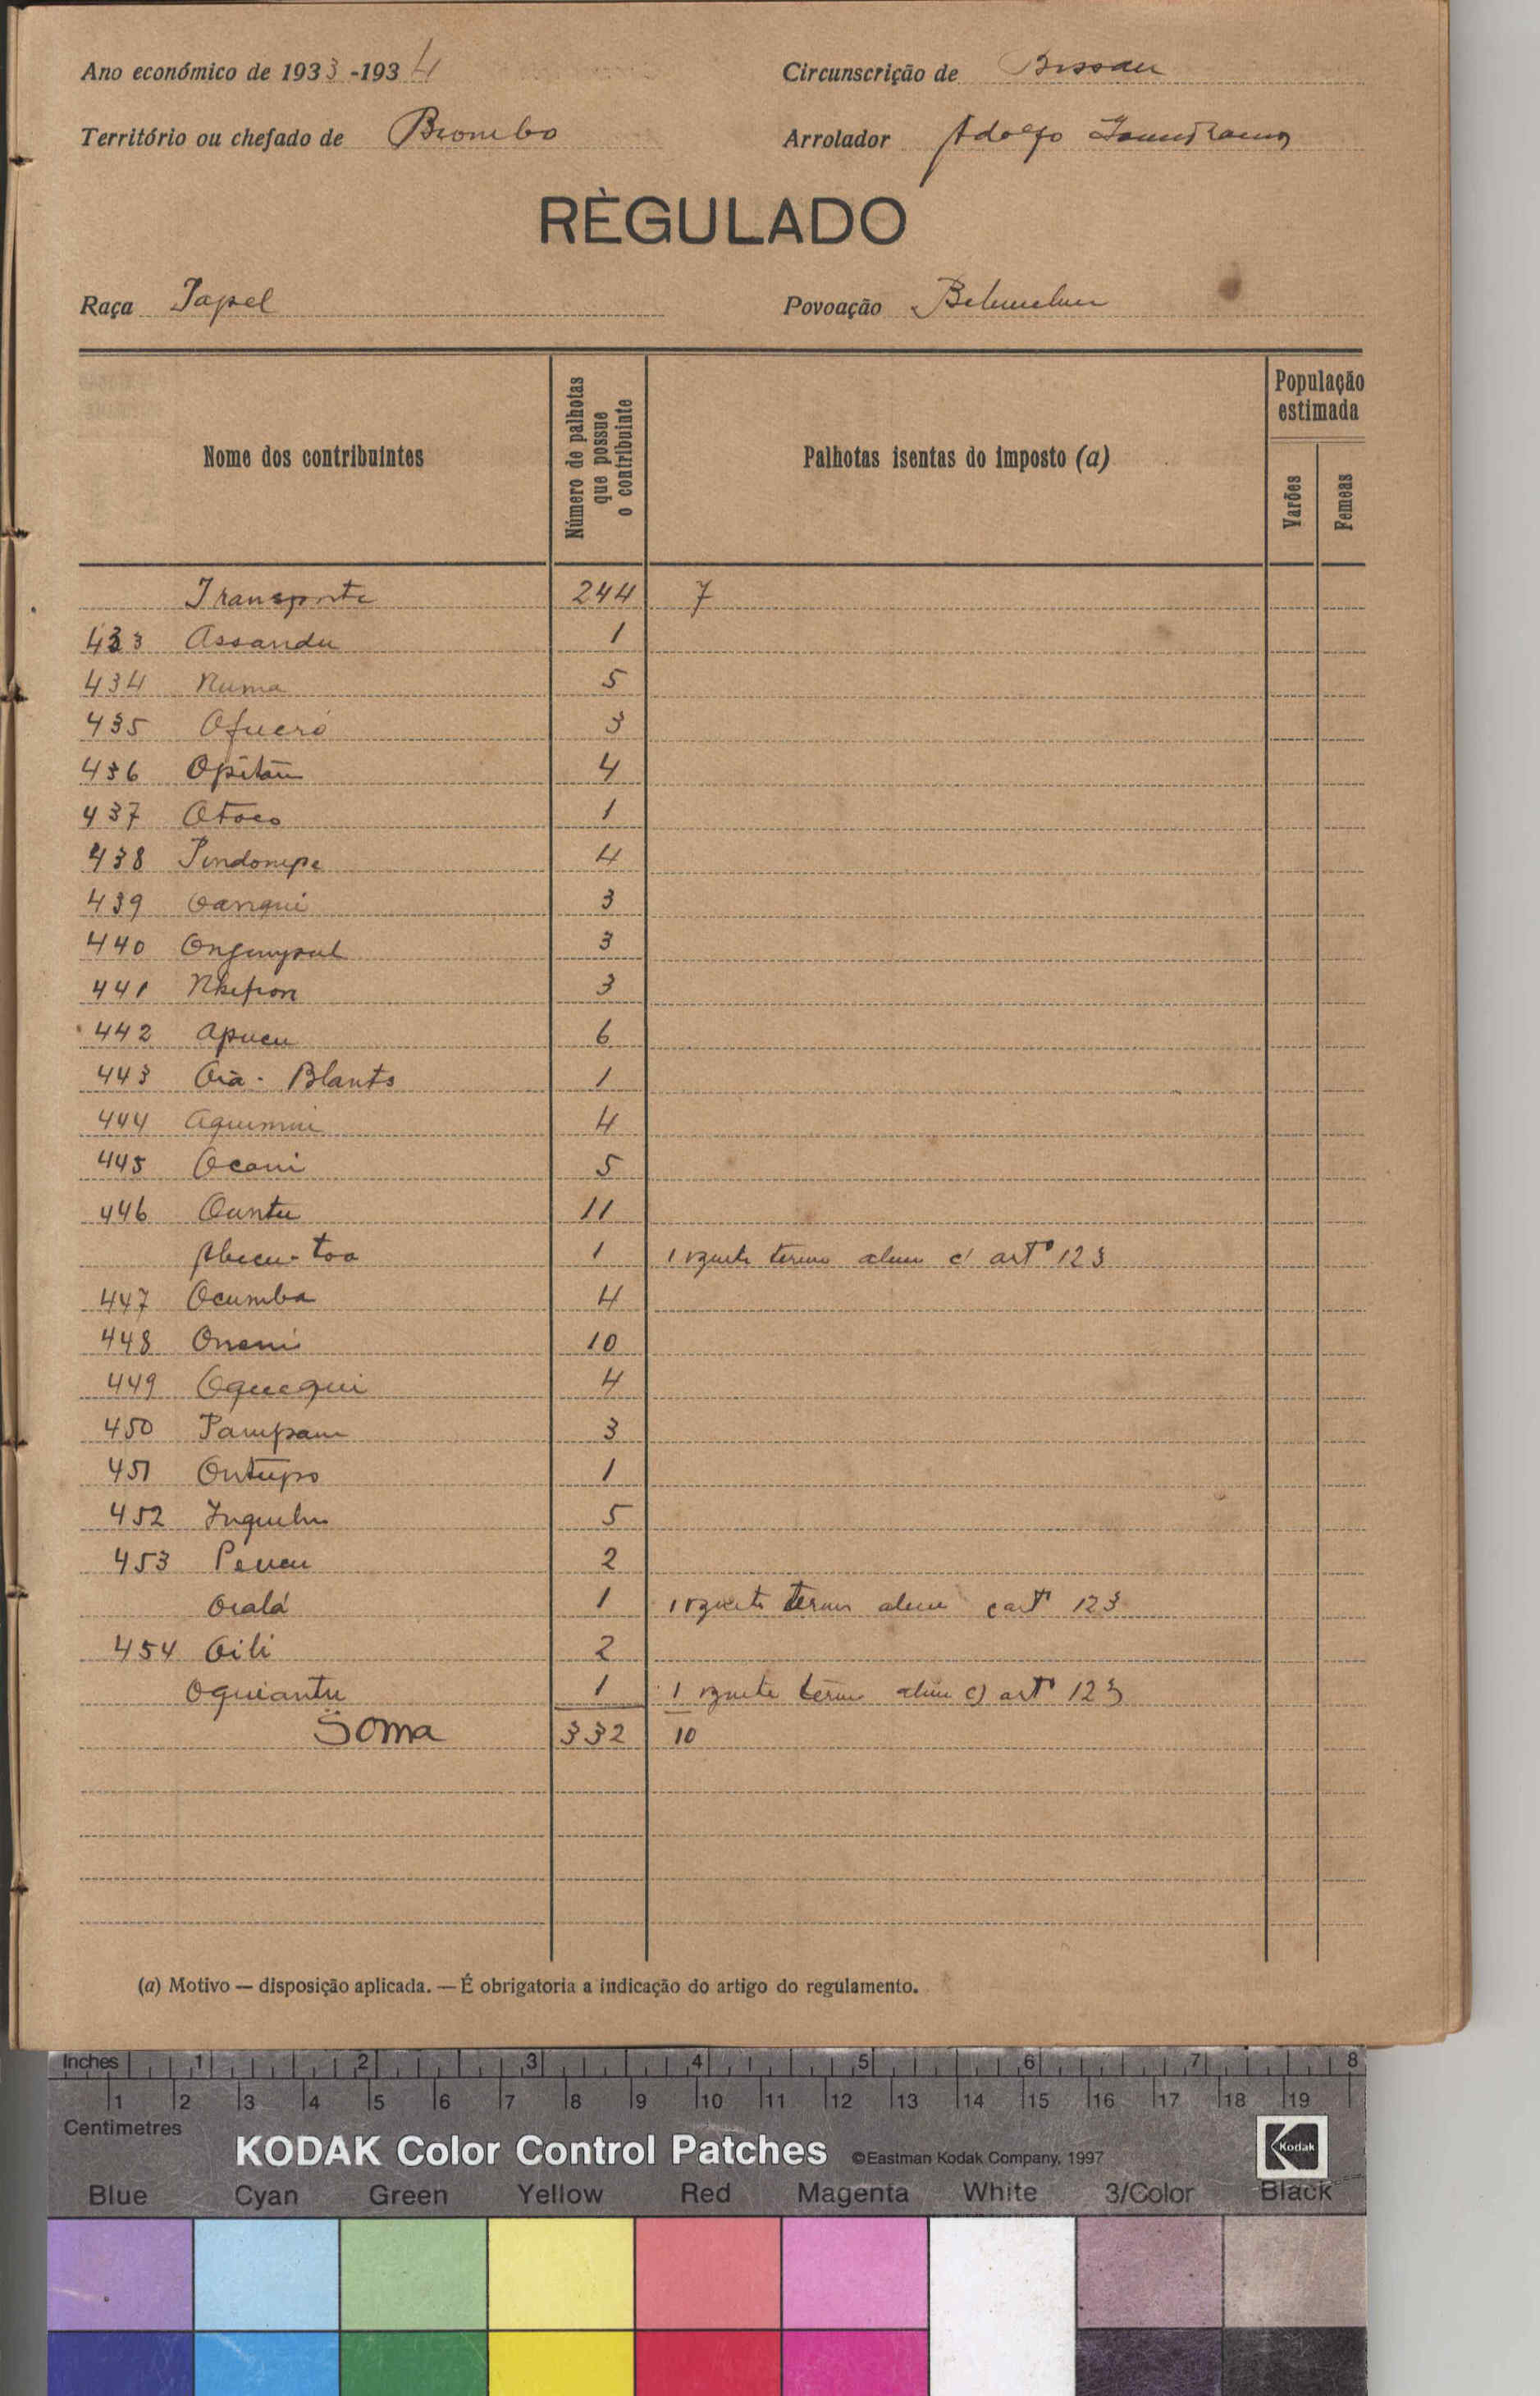 Ano económico de 1933-1934
Circunscrição de Bissau
Território ou chefado de Biombo
Arrolador Adolfo
RÈGULADO
Raça Papel
Povoação
Nome dos contribuintes
Número de palhotas que possue o contribuinte
Palhotas isentas do imposto (a)
População estimada
Varões
Femeas
Transporte 244 7
433 Assandu 1
434 Numa 5
435 Ofueró 3
436 Opitân 4
437 Otoco 1
438 Pindompe 4
439 Oanqui 3
440 3
441 3
442 Apucu 6
443 Oià - Blants 1
444 Aquimini 4
445 Ocani 5
446 Ountu 11
1 1 c) artº 123
447 Ocumba 4
448 Oneni 10
449 Oquequi 4
450 Pampam 3
451 Ontupo 1
452 5
453 2
Oialá 1 1 c artº 123
454 Oili 2
Oquiantu 1 1 c) artº 123
Soma 332 10
(a) Motivo — disposição aplicada. — É obrigatoria a indicação do artigo do regulamento.
Inches 1 2 3 4 5 6 7 8
1 2 3 4 5 6 7 8 9 10 11 12 13 14 15 16 17 18 19
Centimetres
KODAK Color Control Patches ©Eastman Kodak Company, 1997 Kodak
Blue Cyan Green Yellow Red Magenta White 3/Color Black